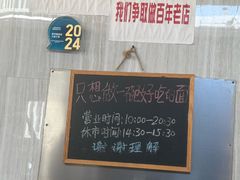 我们争取做百年老店
2024
只想做一碗好吃的面
营业时间:10:00-20:30
休市时间:14:30-15:30
谢谢理解